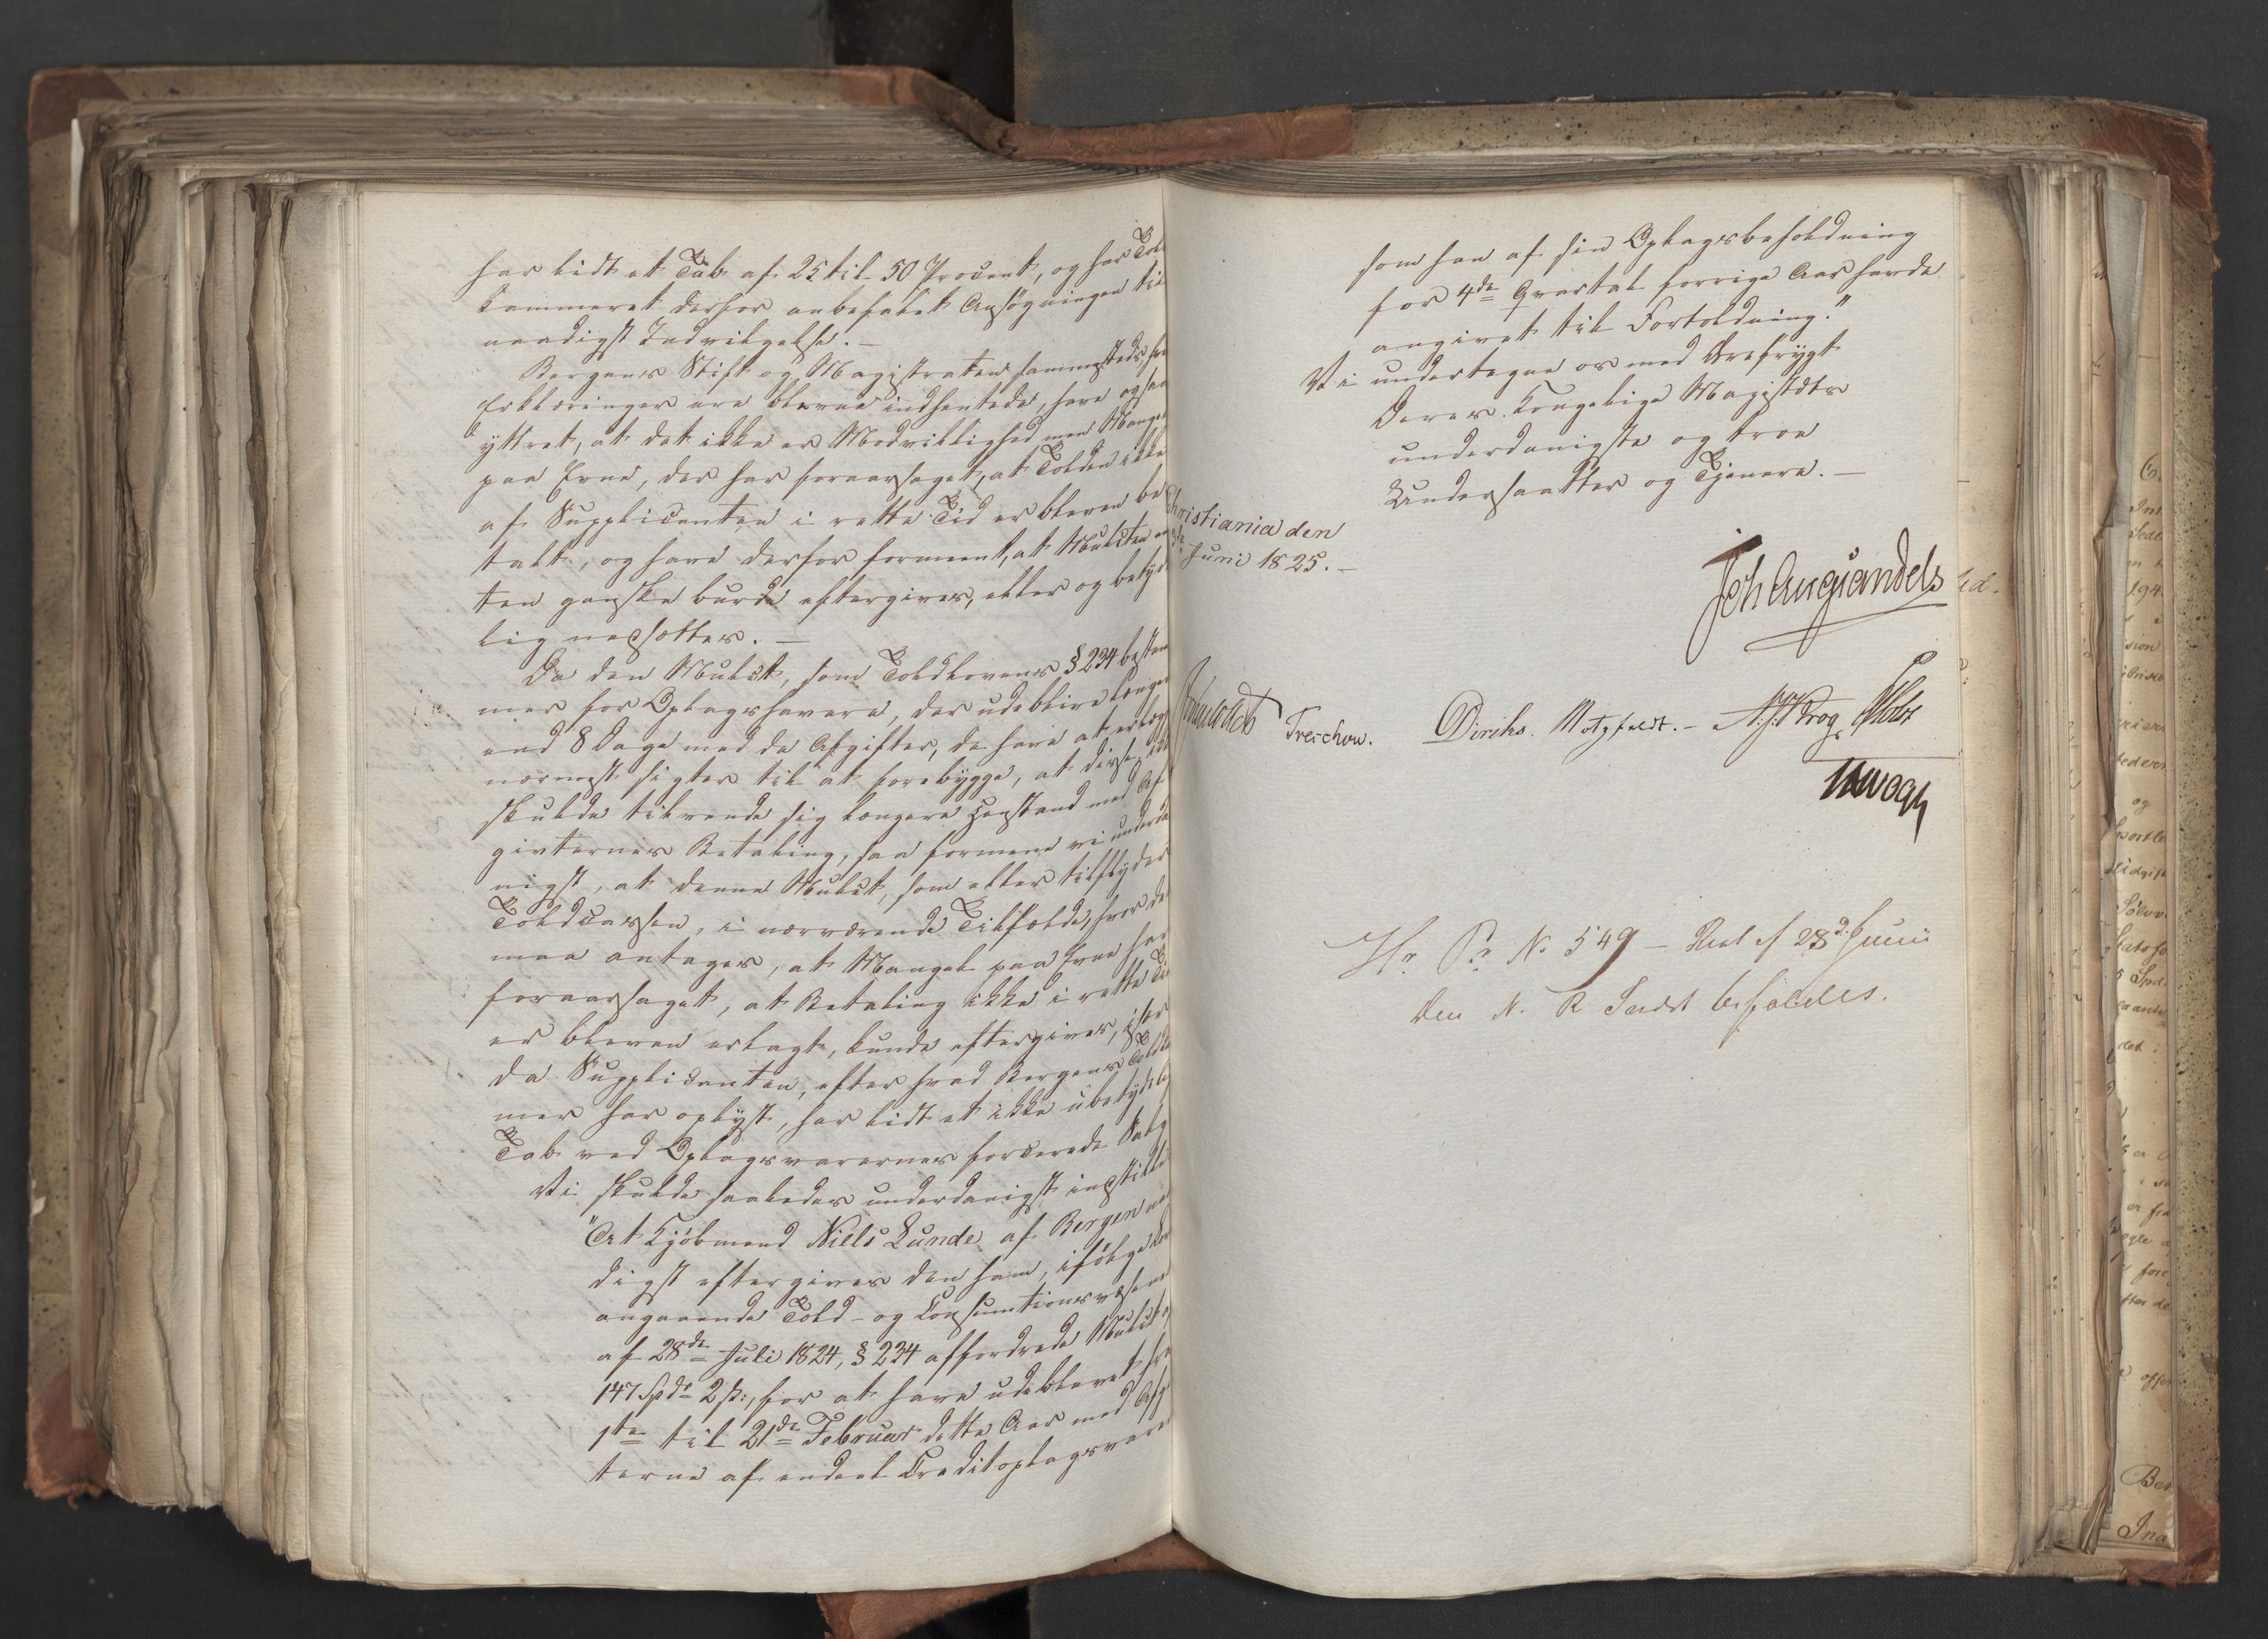 har lidt et Tab af 25 til 50 Procent, og har Told
kammeret derfor anbefalet Ansøgningen til
naadigst Indvilgelse. —
Bergens Stift og Magistraten sammesteds, hvis
Erklæringer ere blevne indhentede, have ogsaa
yttret, at det ikke er Modvillighed men Mangel
paa Evne, der har foraarsaget, at Tolden ikke
af Supplicanten i rette Tid er bleven be
talt, og have derfor formeent, at Mulcten en
ten ganske burde eftergives, eller og betyde
lig nedsættes. —
Da den Mulct, som Toldlovens § 234 bestem
mer for Oplagshavere, der udeblive længer
end 8 Dage med de Afgifter, de have at erlægge
nærmest sigter til at forebygge, at disse ikke
skulde tilvende sig længere Henstand med Af
givternes Betaling, saa formene vi underda
nigst, at denne Mulct, som eller tilflyder
Toldcassen, i nærværende Tilfælde, hvor det
maa antages, at Mangel paa Evne har
foraarsaget, at Betaling ikke i rette Tid
er bleven erlagt, kunde eftergives, især
da Supplicanten, efter hvad Bergens Toldkam
mer har oplyst, har lidt et ikke ubetydelig
Tab ved Oplagsvarernes forcerede Salg
Vi skulde saaledes underdanigst indstille
"At Kjøbmand Niels Lunde af Bergen naa
digst eftergives den ham, ifølge Lov
angaaende Told- og Consumtionsvæsenet
af 28de Juli 1824, § 234 affordrede Mulct,
147 Spd 2 ß:, for at have udeblevet fra
1ste til 21de Februar dette Aar med Afgif
terne af endeel Creditoplagsvarer
som han af sin Oplagsbeholdning
for 4de Qvartal forrige Aar havde
angivet til Fortoldning."
Vi undertegne os med Ærefrygt
Deres Kongelige Majestæts
underdanigste og troe
Undersaatter og Tjenere. —
Christiania den
Juni 1825. —
Joh Aug Sandels
Treschow. Diriks. Motzfeldt. — Krog Holst
Vogt
No 549 — Res af 28de Junii
Den N. R Indst bifaldes.